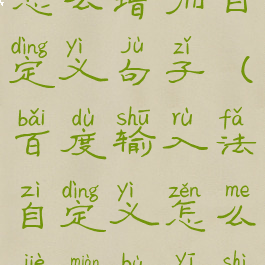 怎么增加自
dìng yì jù zǐ
定义句子(
bǎi dù shū rù fǎ
百度输入法
zì dìng yì zěn me
自定义怎么